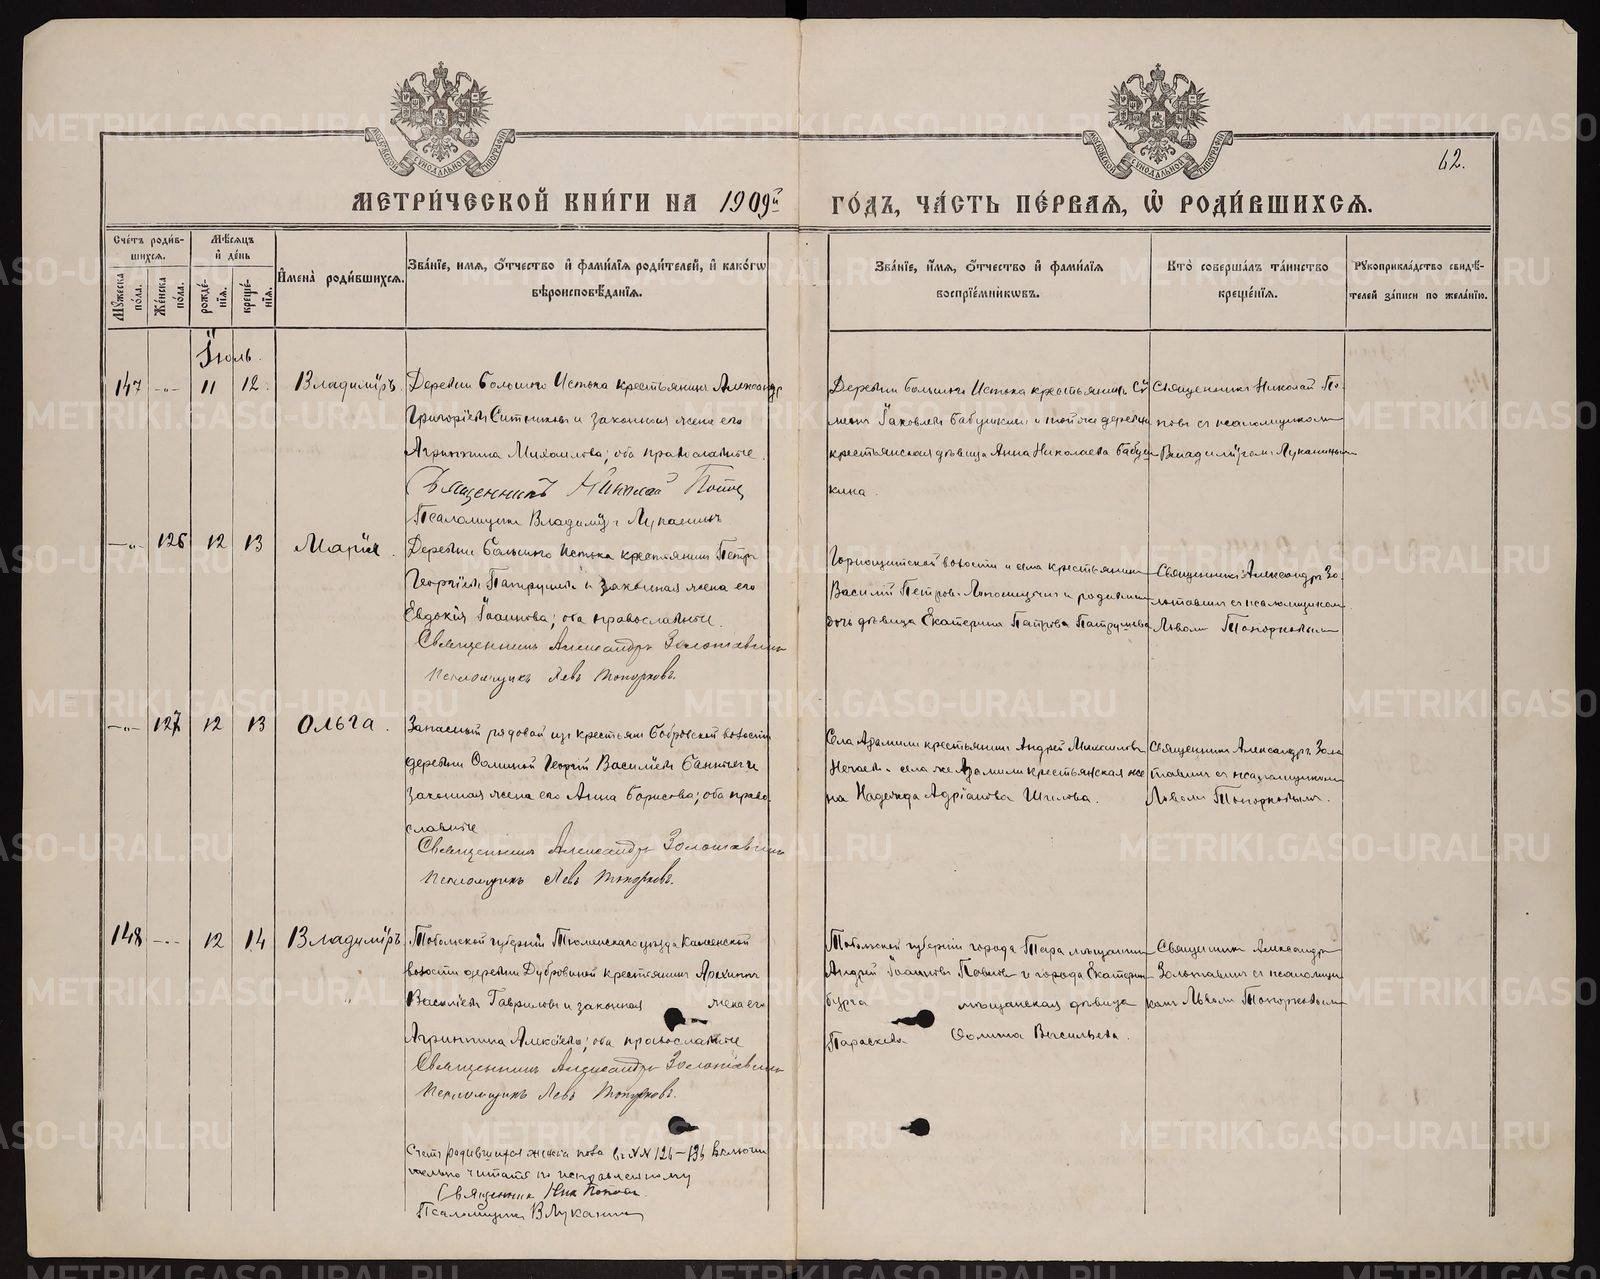 62.
МЕТРИ́ЧЕСКОЙ КНИ́ГИ НА 1909й ГО́ДЪ, ЧА́СТЬ ПЕ́РВАЯ, Ѽ РОДИ́ВШИХСЯ.
Сче́тъ роди́в-
шихся.
Мꙋ́жеска
по́ла.
Же́нска
по́ла.
Мѣ́сяцъ
и҆ де́нь
рожде́-
нїя.
креще́-
нїя.
И҆мена̀ роди́вшихся.
Зва́нїе, имя, о҆́тчество и҆ фами́лїя роди́телей, и҆ како́гѡ
вѣроисповѣ́данїя.
Зва́нїе, и҆́мя, о҆́тчество и҆ фами́лїя
воспрїе́мникѡвъ.
Кто̀ соверша́лъ та́инство
креще́нїя.
Рꙋкоприкла́дство свидѣ́-
телей за́писи по жела́нїю.
Іюль.
147 -„- 11 12. Владиміръ.
Деревни Большого Истока крестьянинъ Александръ
Григоріевъ Ситниковъ и законная жена его
Агриппина Михаилова; оба православные.
Священникъ Николай Поповъ
Псаломщикъ Владиміръ Луканинъ
Деревни Большого Истока крестьянинъ Сѵ
меонъ Іаковлевъ Бабушкинъ и той же деревни
крестьянская дѣвица Анна Николаева Бабуш
кина.
Священникъ Николай По-
повъ съ псаломщикомъ
Владиміромъ Луканинымъ
-„- 126 12 13 Марія.
Деревни Большого Истока крестьянинъ Петръ
Георгіевъ Патрушевъ и законная жена его
Евдокія Іоаннова; оба православные.
Священникъ Александръ Золотавинъ
Псаломщикъ Левъ Топорковъ.
Горнощитской волости и села крестьянинъ
Василій Петровъ и родителей
дочь дѣвица Екатерина Петрова Патрушева
Священникъ Александръ Зо-
лотавинъ съ псаломщикомъ
Львомъ Топорковымъ
-„- 127 12 13 Ольга.
Запасный рядовой изъ крестьянъ Бобровской волости
деревни Георгій Василіевъ Банныхъ и
законная жена его Анна Борисова; оба право-
славные
Священникъ Александръ Золотавинъ
Псаломщикъ Левъ Топорковъ.
Села Арамили крестьянинъ Андрей Михаиловъ
Нечаевъ и села же Арамили крестьянская же
на Надежда Адріанова Шилова.
Священникъ Александръ Золо
тавинъ съ псаломщикомъ
Львомъ Топорковымъ.
148 -„- 12 14 Владиміръ
Тобольской губерніи Тюменскаго уѣзда Каменской
волости деревни Дубровиной крестьянинъ
Василіевъ Гавриловъ и законная жена его
Агриппина Алексіева; оба православные
Священникъ Александръ Золотавинъ
Псаломщикъ Левъ Топорковъ.
Тобольской губерніи города Тара мѣщанинъ
Андрей Іоанновъ Павловъ и города Екатерин
бурга мѣщанская дѣвица
Параскева Ѳомина Васильева.
Священникъ Александръ
Золотавинъ съ псаломщи
комъ Львомъ Топорковымъ
Счетъ родившихся женска пола въ №№ 126-136 включи
тельно читать по исправленному
Священникъ Ник Поповъ.
Псаломщикъ В Луканинъ
METRIKI.GASO-URAL.RU